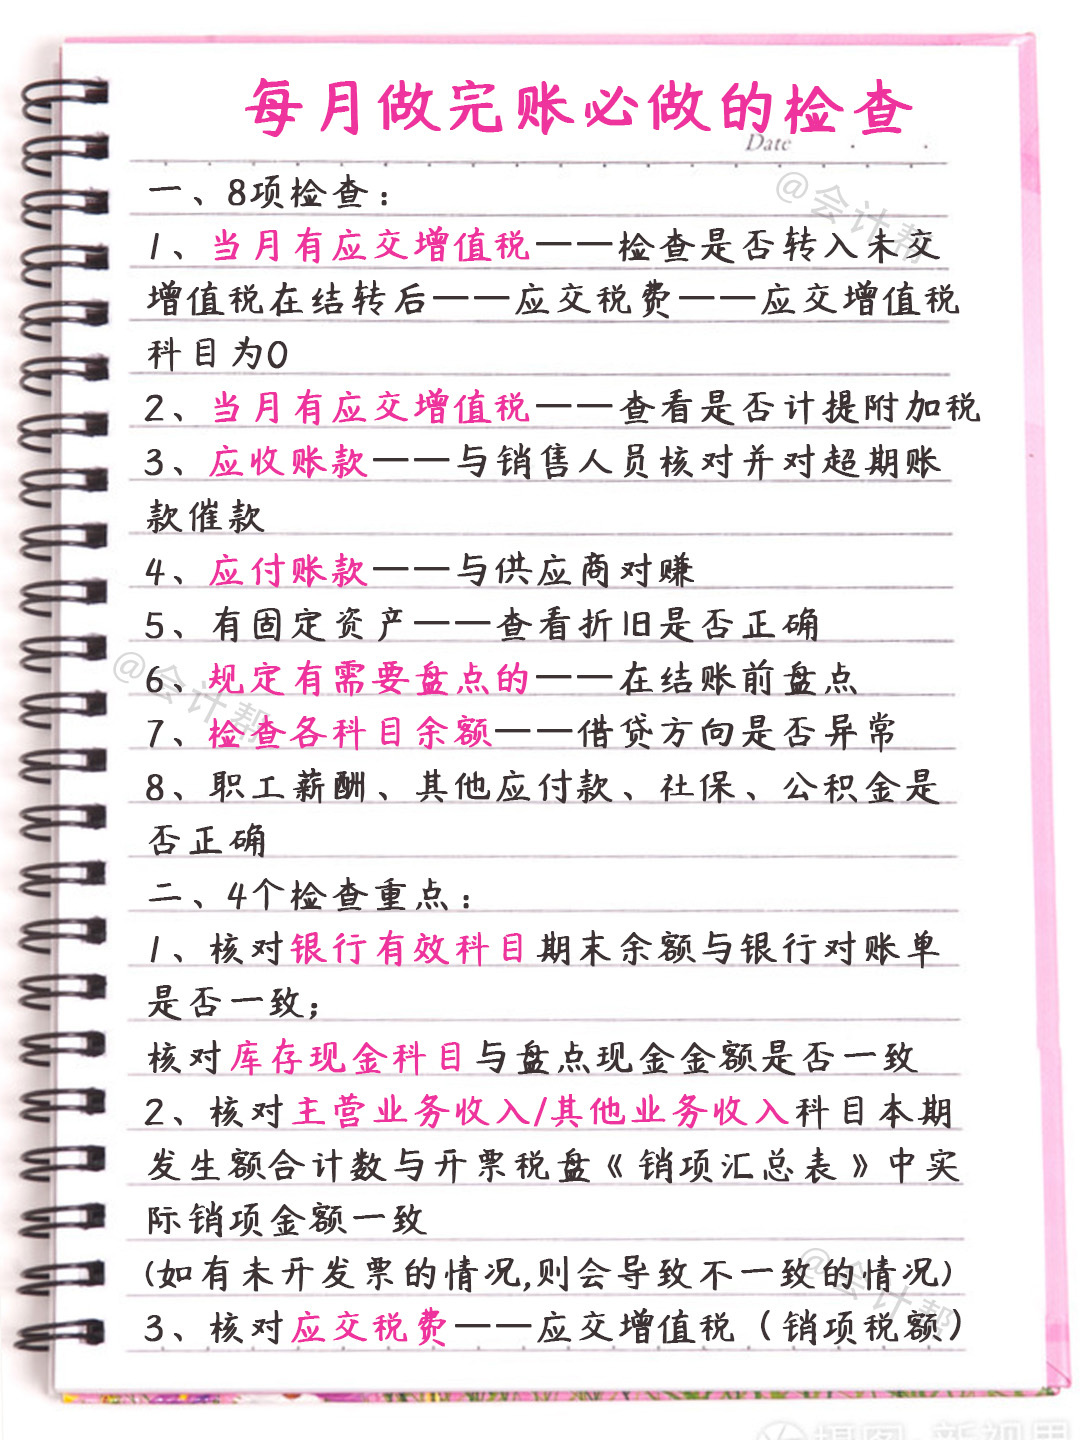 每月做完账必做的检查
Date
一、8项检查：
@会计帮
1、当月有应交增值税——检查是否转入未交
增值税在结转后——应交税费——应交增值税
科目为0
2、当月有应交增值税——查看是否计提附加税
3、应收账款——与销售人员核对并对超期账
款催款
4、应付账款——与供应商对赚
5、有固定资产——查看折旧是否正确
@会计帮
6、规定有需要盘点的——在结账前盘点
7、检查各科目余额——借贷方向是否异常
8、职工薪酬、其他应付款、社保、公积金是
否正确
二、4个检查重点：
1、核对银行有效科目期末余额与银行对账单
是否一致；
核对库存现金科目与盘点现金金额是否一致
2、核对主营业务收入/其他业务收入科目本期
发生额合计数与开票税盘《销项汇总表》中实
际销项金额一致
(如有未开发票的情况,则会导致不一致的情况)
@会计帮
3、核对应交税费——应交增值税（销项税额）